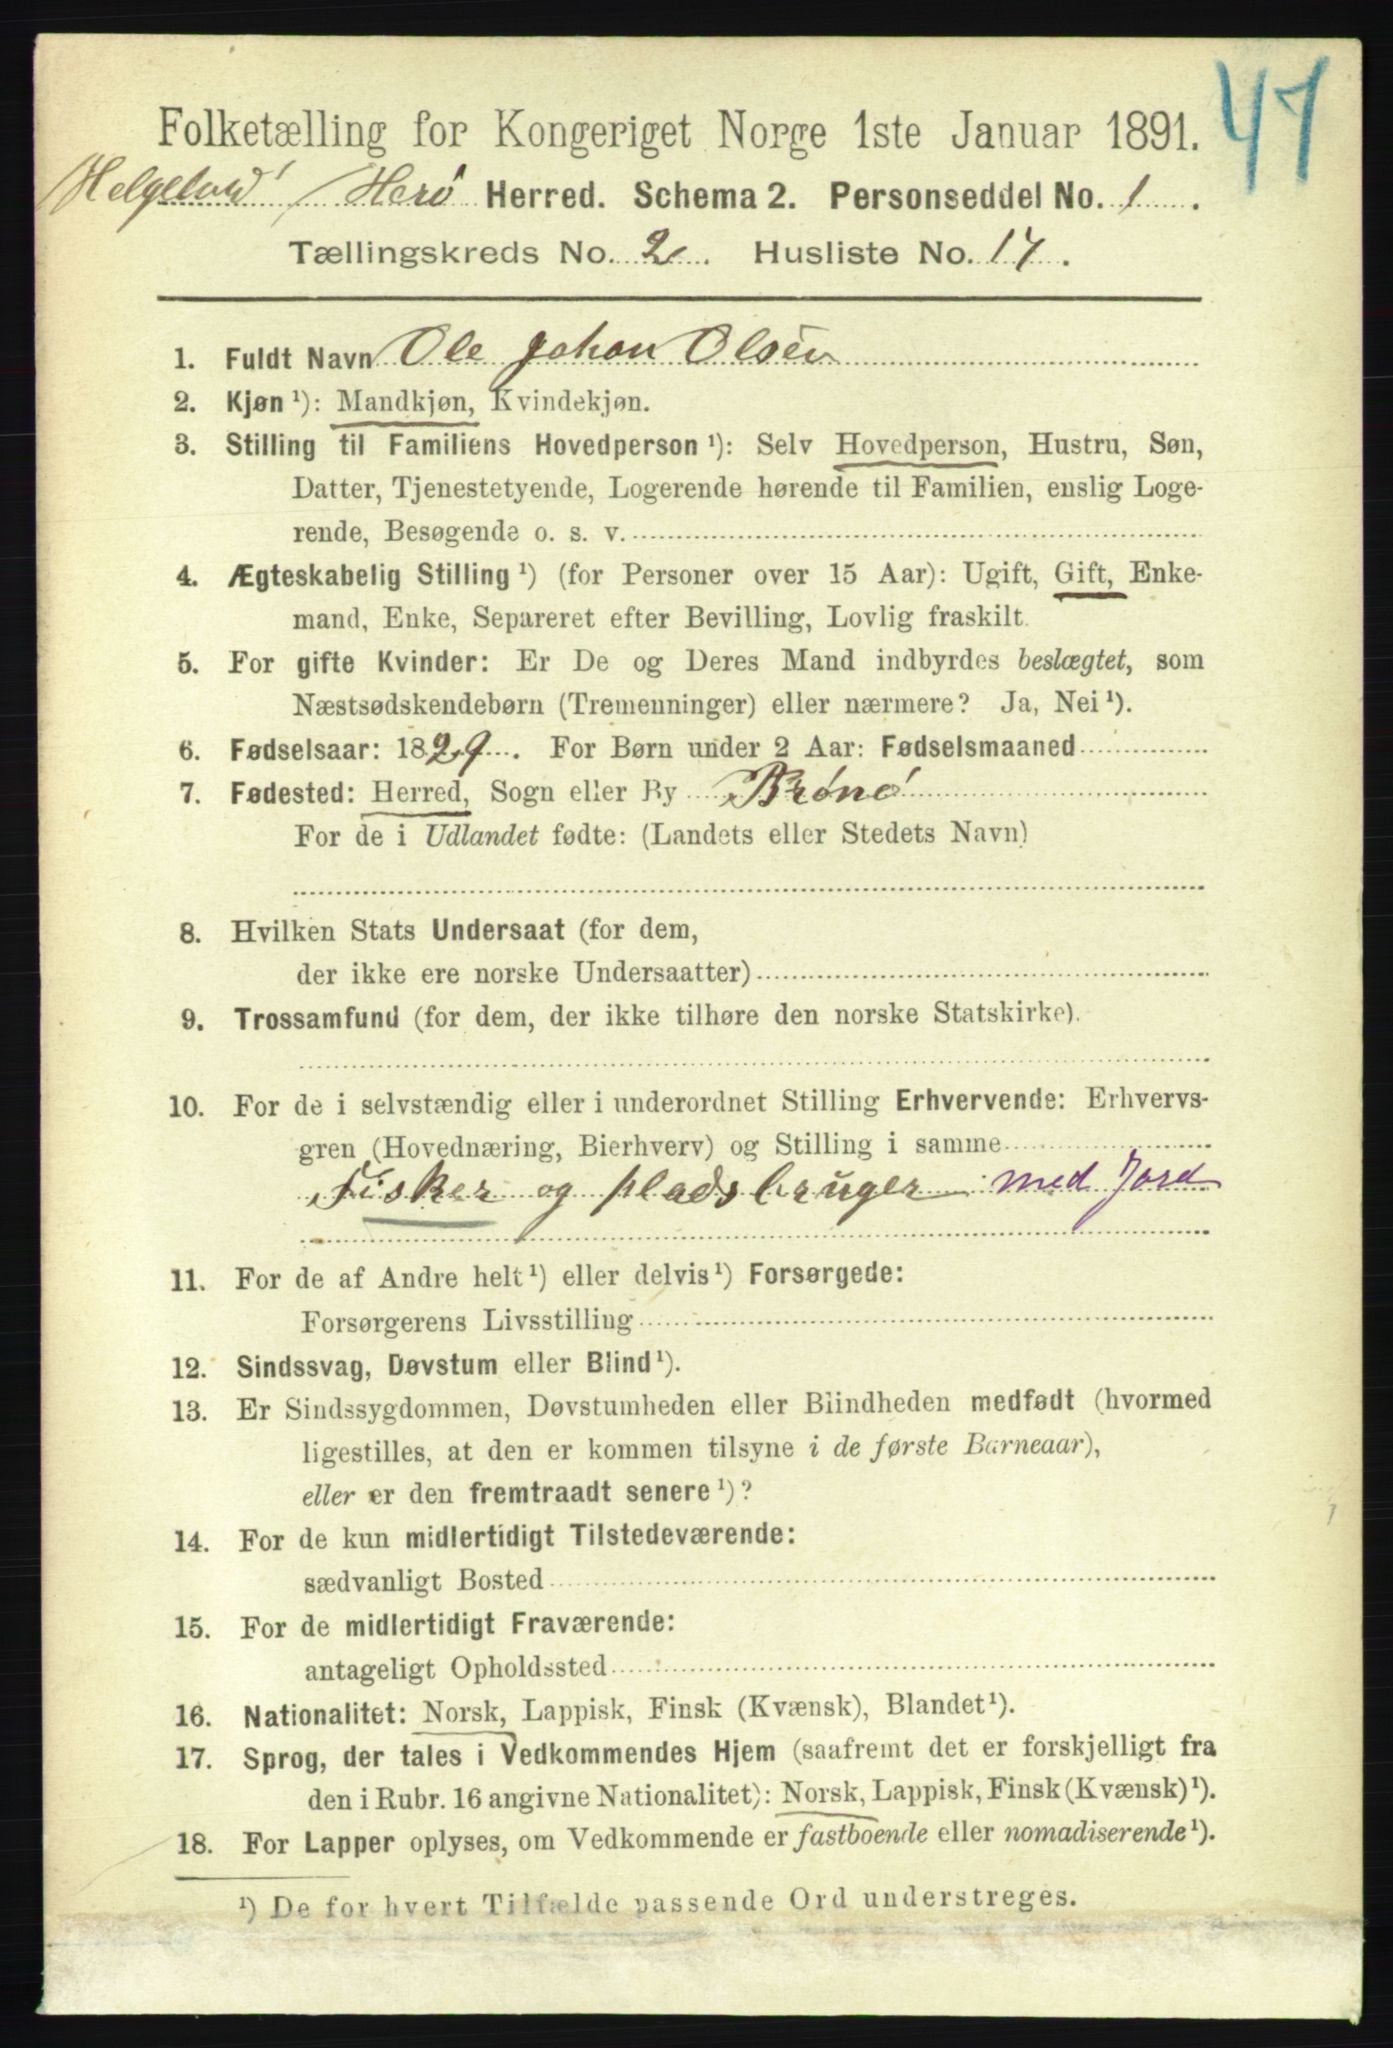 47
Folketælling for Kongeriget Norge 1ste Januar 1891.
Helgeland / Herø Herred. Schema 2. Personseddel No. 1.
Tællingskreds No. 2. Husliste No. 17.
1. Fuldt Navn Ole Johan Olsen
2. Kjøn ¹): Mandkjøn, Kvindekjøn.
3. Stilling til Familiens Hovedperson ¹): Selv Hovedperson, Hustru, Søn,
Datter, Tjenestetyende, Logerende hørende til Familien, enslig Loge-
rende, Besøgende o. s. v.
4. Ægteskabelig Stilling ¹) (for Personer over 15 Aar): Ugift, Gift, Enke-
mand, Enke, Separeret efter Bevilling, Lovlig fraskilt.
5. For gifte Kvinder: Er De og Deres Mand indbyrdes beslægtet, som
Næstsødskendebørn (Tremenninger) eller nærmere? Ja, Nei ¹).
6. Fødselsaar: 1829. For Børn under 2 Aar: Fødselsmaaned
7. Fødested: Herred, Sogn eller By Brønø
For de i Udlandet fødte: (Landets eller Stedets Navn)
8. Hvilken Stats Undersaat (for dem,
der ikke ere norske Undersaatter)
9. Trossamfund (for dem, der ikke tilhøre den norske Statskirke).
10. For de i selvstændig eller i underordnet Stilling Erhvervende: Erhvervs-
gren (Hovednæring, Bierhverv) og Stilling i samme
Fisker og pladsbruger med Jord
11. For de af Andre helt ¹) eller delvis ¹) Forsørgede:
Forsørgerens Livsstilling
12. Sindssvag, Døvstum eller Blind ¹).
13. Er Sindssygdommen, Døvstumheden eller Blindheden medfødt (hvormed
ligestilles, at den er kommen tilsyne i de første Barneaar),
eller er den fremtraadt senere ¹)?
14. For de kun midlertidigt Tilstedeværende:
sædvanligt Bosted
15. For de midlertidigt Fraværende:
antageligt Opholdssted
16. Nationalitet: Norsk, Lappisk, Finsk (Kvænsk), Blandet ¹).
17. Sprog, der tales i Vedkommendes Hjem (saafremt det er forskjelligt fra
den i Rubr. 16 angivne Nationalitet): Norsk, Lappisk, Finsk (Kvænsk) ¹).
18. For Lapper oplyses, om Vedkommende er fastboende eller nomadiserende ¹).
¹) De for hvert Tilfælde passende Ord understreges.